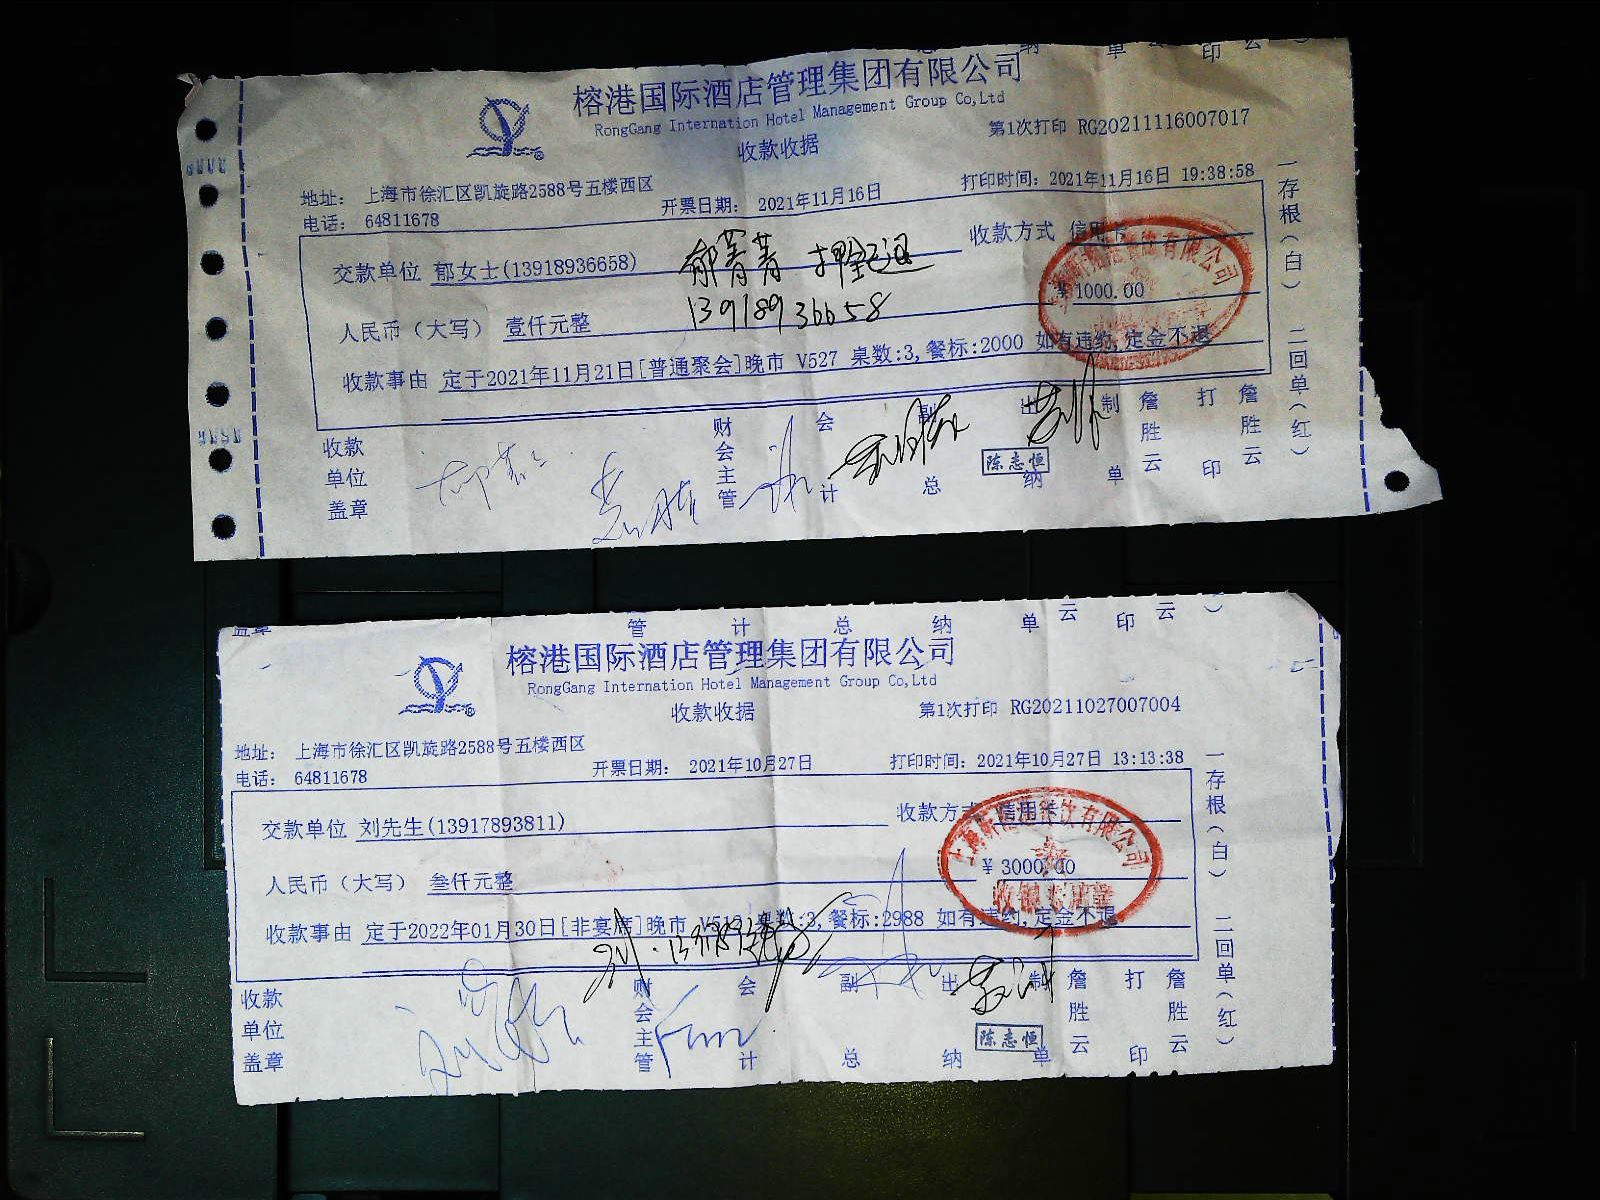 榕港国际酒店管理集团有限公司
RongGang Internation Hotel Management Group Co,Ltd
收款收据
第1次打印 RG20211116007017
地址： 上海市徐汇区凯旋路2588号五楼西区
电话： 64811678
开票日期： 2021年11月16日
打印时间：2021年11月16日 19:38:58
交款单位 郁女士(13918936658)
郁菁菁 押金已退
13918936658
收款方式 信用卡
人民币（大写） 壹仟元整
¥ 1000.00
收款事由 定于2021年11月21日[普通聚会]晚市 V527 桌数:3,餐标:2000 如有违约,定金不退
收款单位盖章
财会主管
会计
副总
出纳
陈志恒
制单 詹胜云
打印 詹胜云
一存根（白） 二回单（红）
榕港国际酒店管理集团有限公司
RongGang Internation Hotel Management Group Co,Ltd
收款收据
第1次打印 RG20211027007004
地址： 上海市徐汇区凯旋路2588号五楼西区
电话： 64811678
开票日期： 2021年10月27日
打印时间：2021年10月27日 13:13:38
交款单位 刘先生(13917893811)
收款方式 信用卡
人民币（大写） 叁仟元整
¥ 3000.00
收款事由 定于2022年01月30日[非宴席]晚市 桌数:3,餐标:2988 如有违约,定金不退
收款单位盖章
财会主管
会计
副总
出纳
陈志恒
制单 詹胜云
打印 詹胜云
一存根（白） 二回单（红）